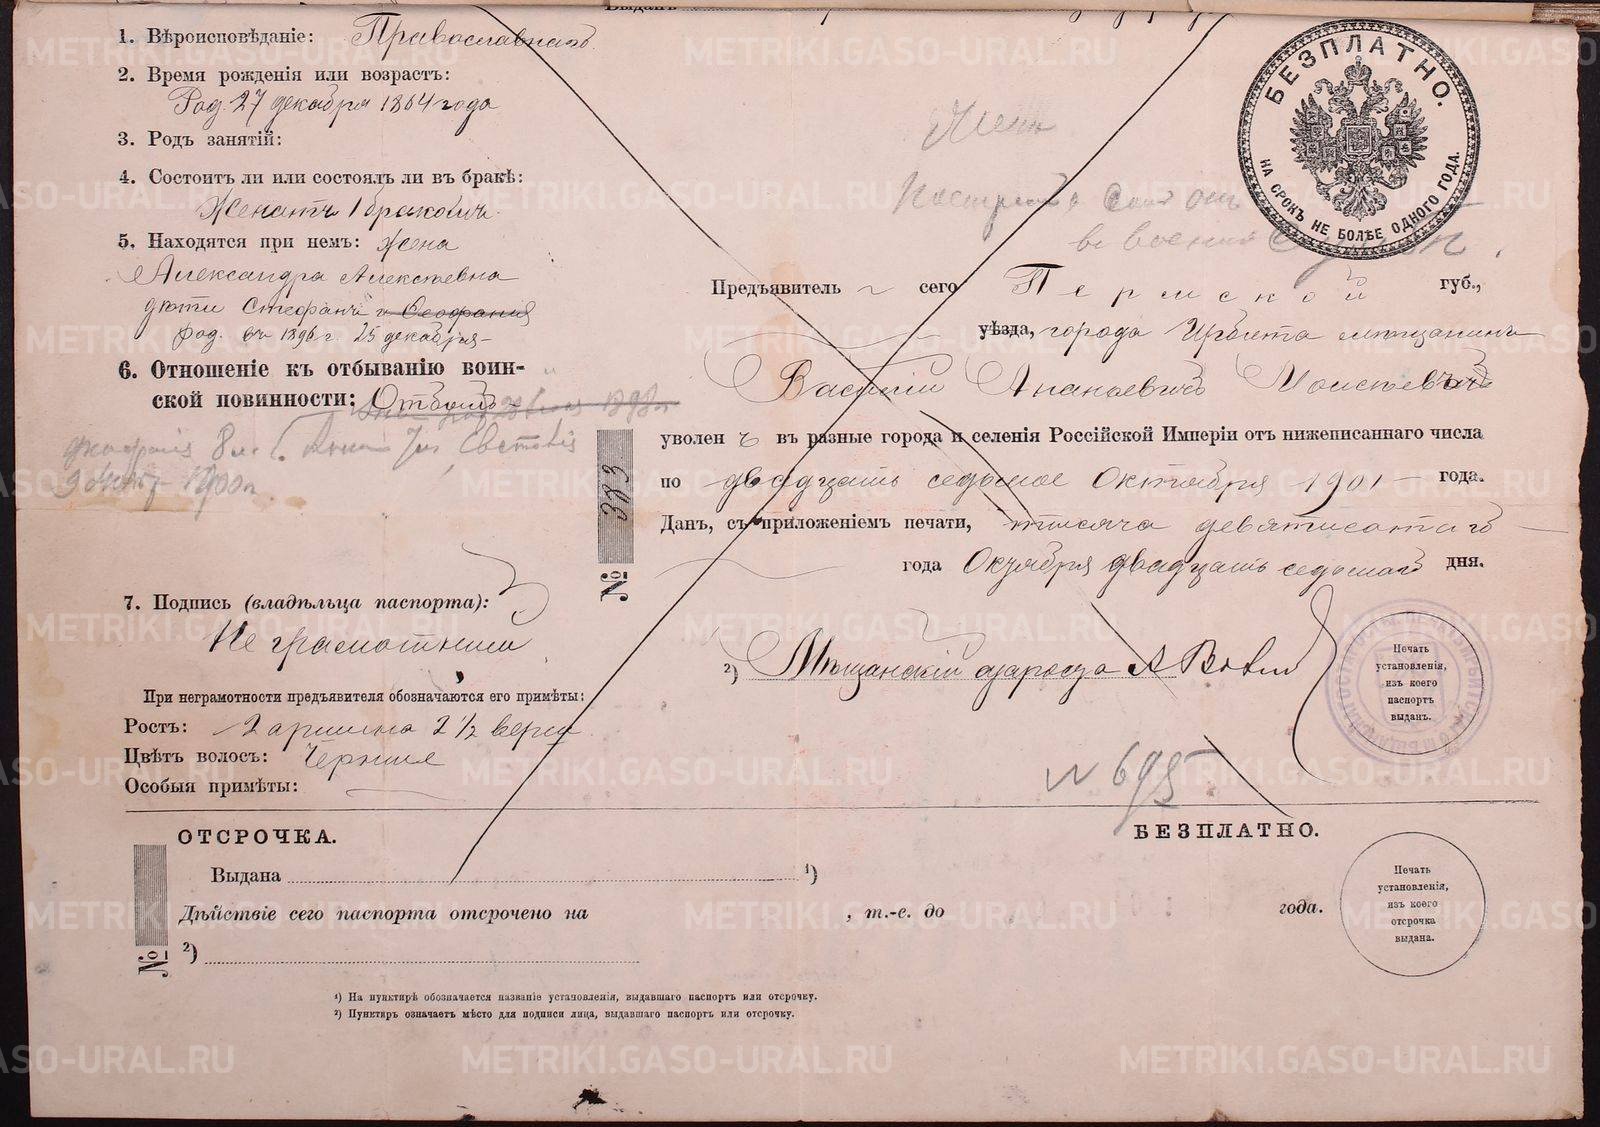 1. Вѣроисповѣданіе: Православнаго
2. Время рожденія или возрастъ:
Род. 27 декабря 1864 года
3. Родъ занятій:
4. Состоитъ ли или состоялъ ли въ бракѣ:
Женатъ I бракомъ
5. Находятся при немъ: жена
Александра Алексѣевна
дѣти Стефанъ и Феофанія
род. въ 1896 г. 25 декабря
6. Отношеніе къ отбыванію воин-
ской повинности: Отбылъ
1900 г.
7. Подпись (владѣльца паспорта):
Не грамотный
При неграмотности предъявителя обозначаются его примѣты:
Ростъ: 2 аршина 2 1/2 верш
Цвѣтъ волосъ: Черные
Особыя примѣты:
БЕЗПЛАТНО.
НА СРОКЪ НЕ БОЛѢЕ ОДНОГО ГОДА.
Предъявитель сего Пермской губ.,
уѣзда, города Ирбита мѣщанинъ
Василій Ананьевичъ Моисѣевъ
уволенъ въ разные города и селенія Россійской Имперіи отъ нижеписаннаго числа
по двадцать седьмое Октября 1901 года.
Данъ, съ приложеніемъ печати, тысяча девятисотаго
года Октября двадцать седьмаго дня.
№ 383
2) Мѣщанскій староста А
Печать
установленія,
изъ коего
паспортъ
выданъ.
№ 695
ОТСРОЧКА.
БЕЗПЛАТНО.
Выдана 1)
Дѣйствіе сего паспорта отсрочено на , т.-е. до года.
№
2)
Печать
установленія,
изъ коего
отсрочка
выдана.
1) На пунктирѣ обозначается названіе установленія, выдавшаго паспортъ или отсрочку.
2) Пунктиръ означаетъ мѣсто для подписи лица, выдавшаго паспортъ или отсрочку.
METRIKI.GASO-URAL.RU